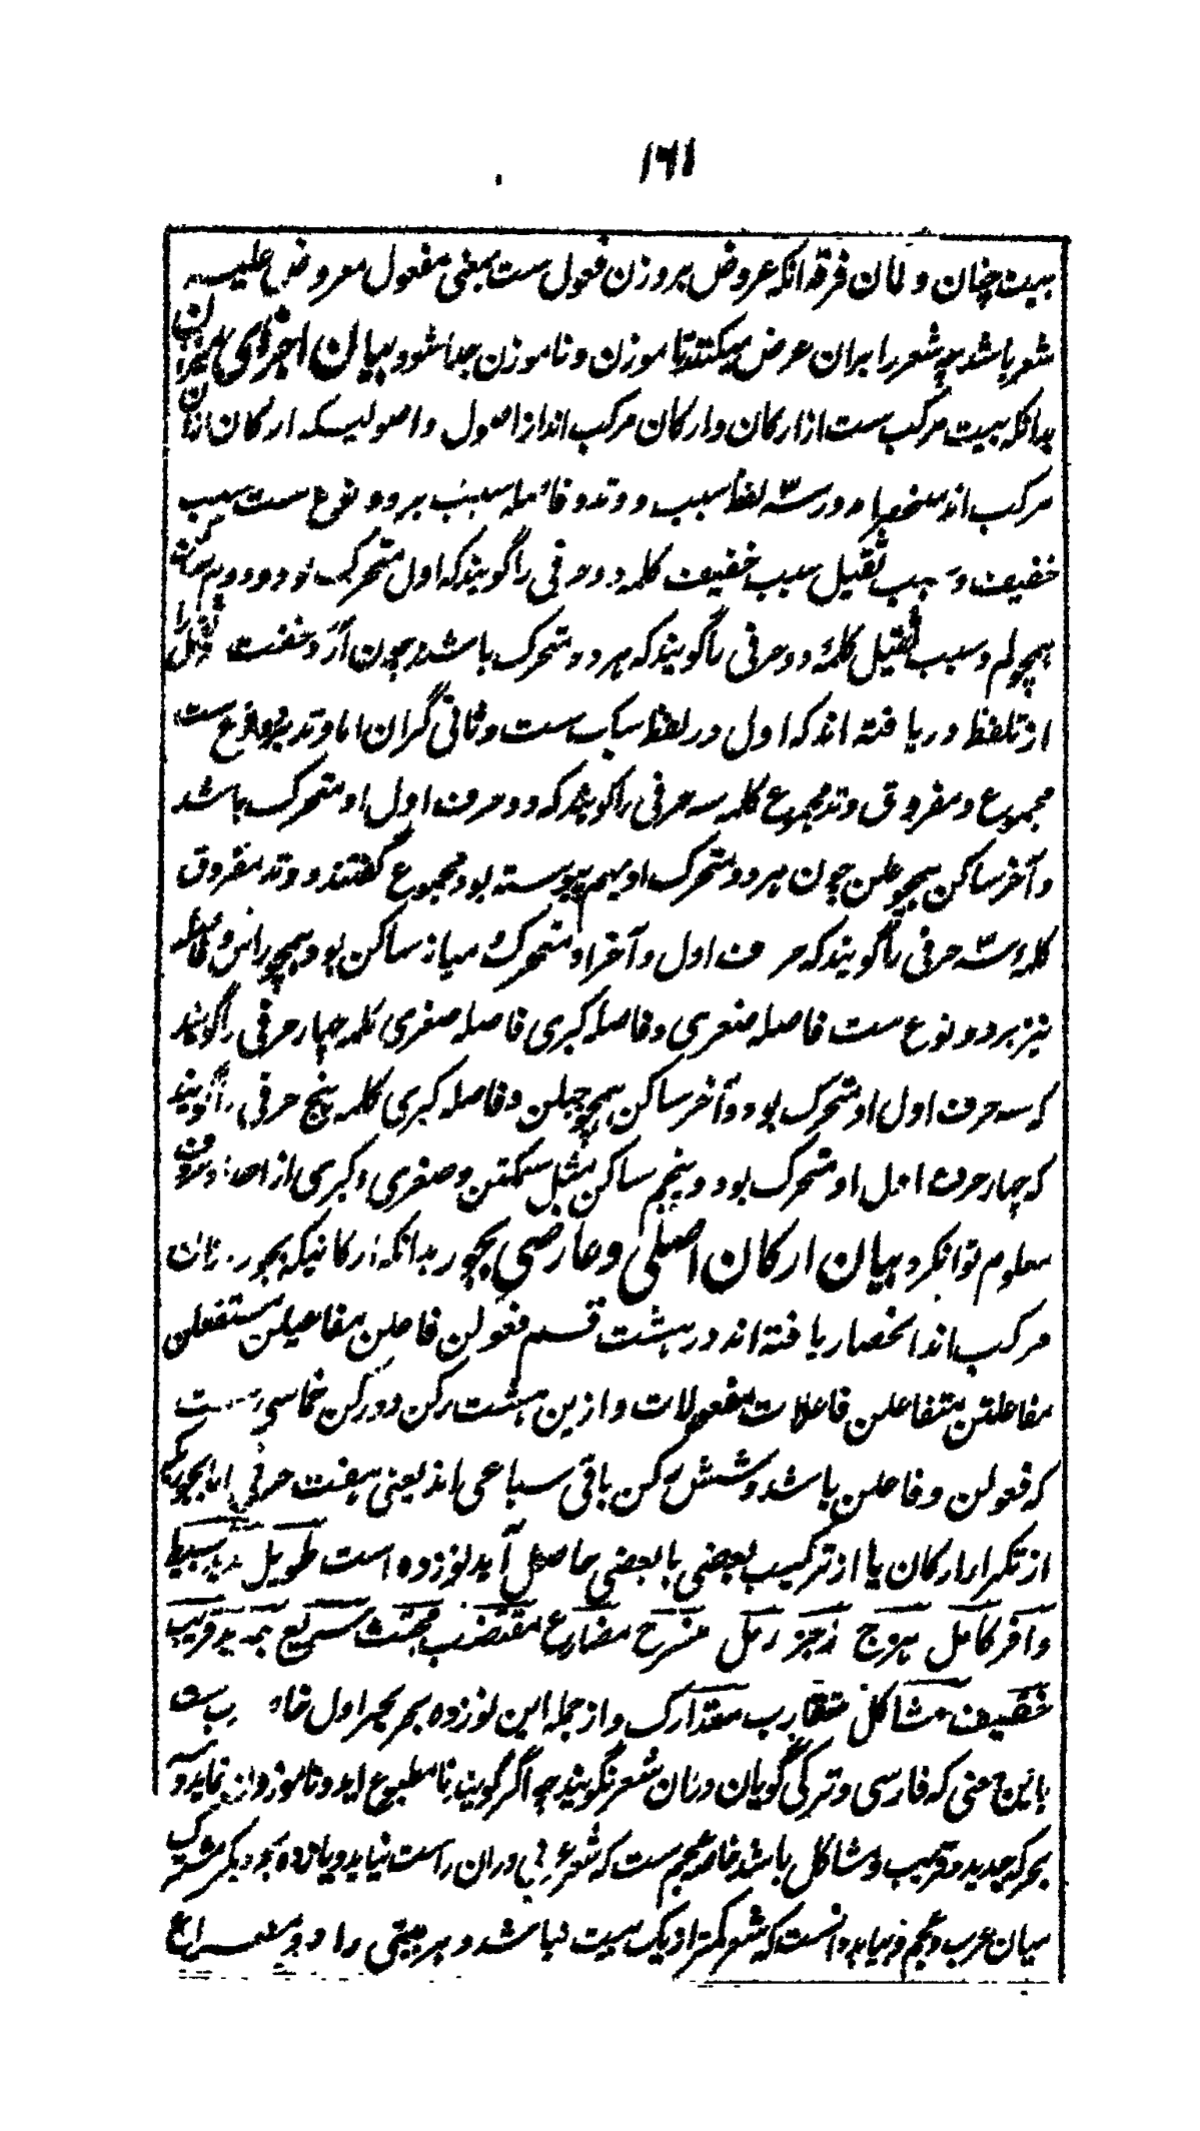 ۱۶۱
بیت چنان و گمان فرقه آنکه عروض بر وزن فعول ست بمعنی مفعول معروض علیه
شعر باشد چه شعر را بران عرض میکنند تا موزن و ناموزن جدا شود بیان اجزای میزان
بدانکه بیت مرکب ست از ارکان و ارکان مرکب اند از اصول و اصولیکه ارکان ازان
مرکب اند منحصراند در سه لفظ سبب و وتد و فاصله سبب بر دو نوع ست سبب
خفیف و سبب ثقیل سبب خفیف کلمه دو حرفی را گویند که اول متحرک بود و دویم ساکن
همچو لم و سبب ثقیل کلمهٔ دو حرفی را گویند که هر دو متحرک باشند چون اَرَ و خفت ثقل را
از تلفظ دریافته اند که اول در لفظ سبک ست و ثانی گران اما وتد بر دو نوع ست
مجموع و مفروق وتد مجموع کلمه سه حرفی را گویند که دو حرف اول او متحرک باشد
و آخر ساکن همچو علن چون هر دو متحرک او بهم پیوسته بود مجموع گفتند و وتد مفروق
کلمهٔ سه حرفی را گویند که حرف اول و آخر او متحرک و میانه ساکن بود همچو راس و فاصله
نیز بر دو نوع ست فاصله صغری و فاصله کبری فاصله صغری کلمه چهار حرفی را گویند
که سه حرف اول او متحرک بود و آخر ساکن همچو جبلن و فاصله کبری کلمه پنج حرفی را گویند
که چهار حرف اول او متحرک بود و پنجم ساکن مثل سمکتن و صغری و کبری از اعداد حروف
معلوم توان کرد بیان ارکان اصلی و عارضی بحور بدانکه ارکانیکه بحور ازان
مرکب اند انحصار یافته اند در هشت قسم فعولن فاعلن مفاعیلن مستفعلن
مفاعلتن متفاعلن فاعلات مفعولات و ازین هشت رکن دو رکن خماسی ست
که فعولن و فاعلن باشد و شش رکن باقی سباعی اند یعنی هفت حرفی اما بحوریکه
از تکرار ارکان یا از ترکیب بعضی با بعضی حاصل آید نوزده است طویل مدید بسیط
وافر کامل هزج رجز رمل منسرح مضارع مقتضب مجتث سریع جدید قریب
خفیف مشاکل متقارب متدارک و از جمله این نوزده بحر پنج بحر اول خاصه عرب ست
باین معنی که فارسی و ترکی گویان دران شعر نگویند چه اگر گویند نامطبوع آید و ناموزون نماید و
بحر که جدید و قریب و مشاکل باشد خاصه عجم ست که شعر عربی دران راست نیاید و یازده بحور دیگر مشترک
میان عرب و عجم و نیاید دانست که شعر کمتر از یک بیت نباشد و هر بیتی را دو مصراع